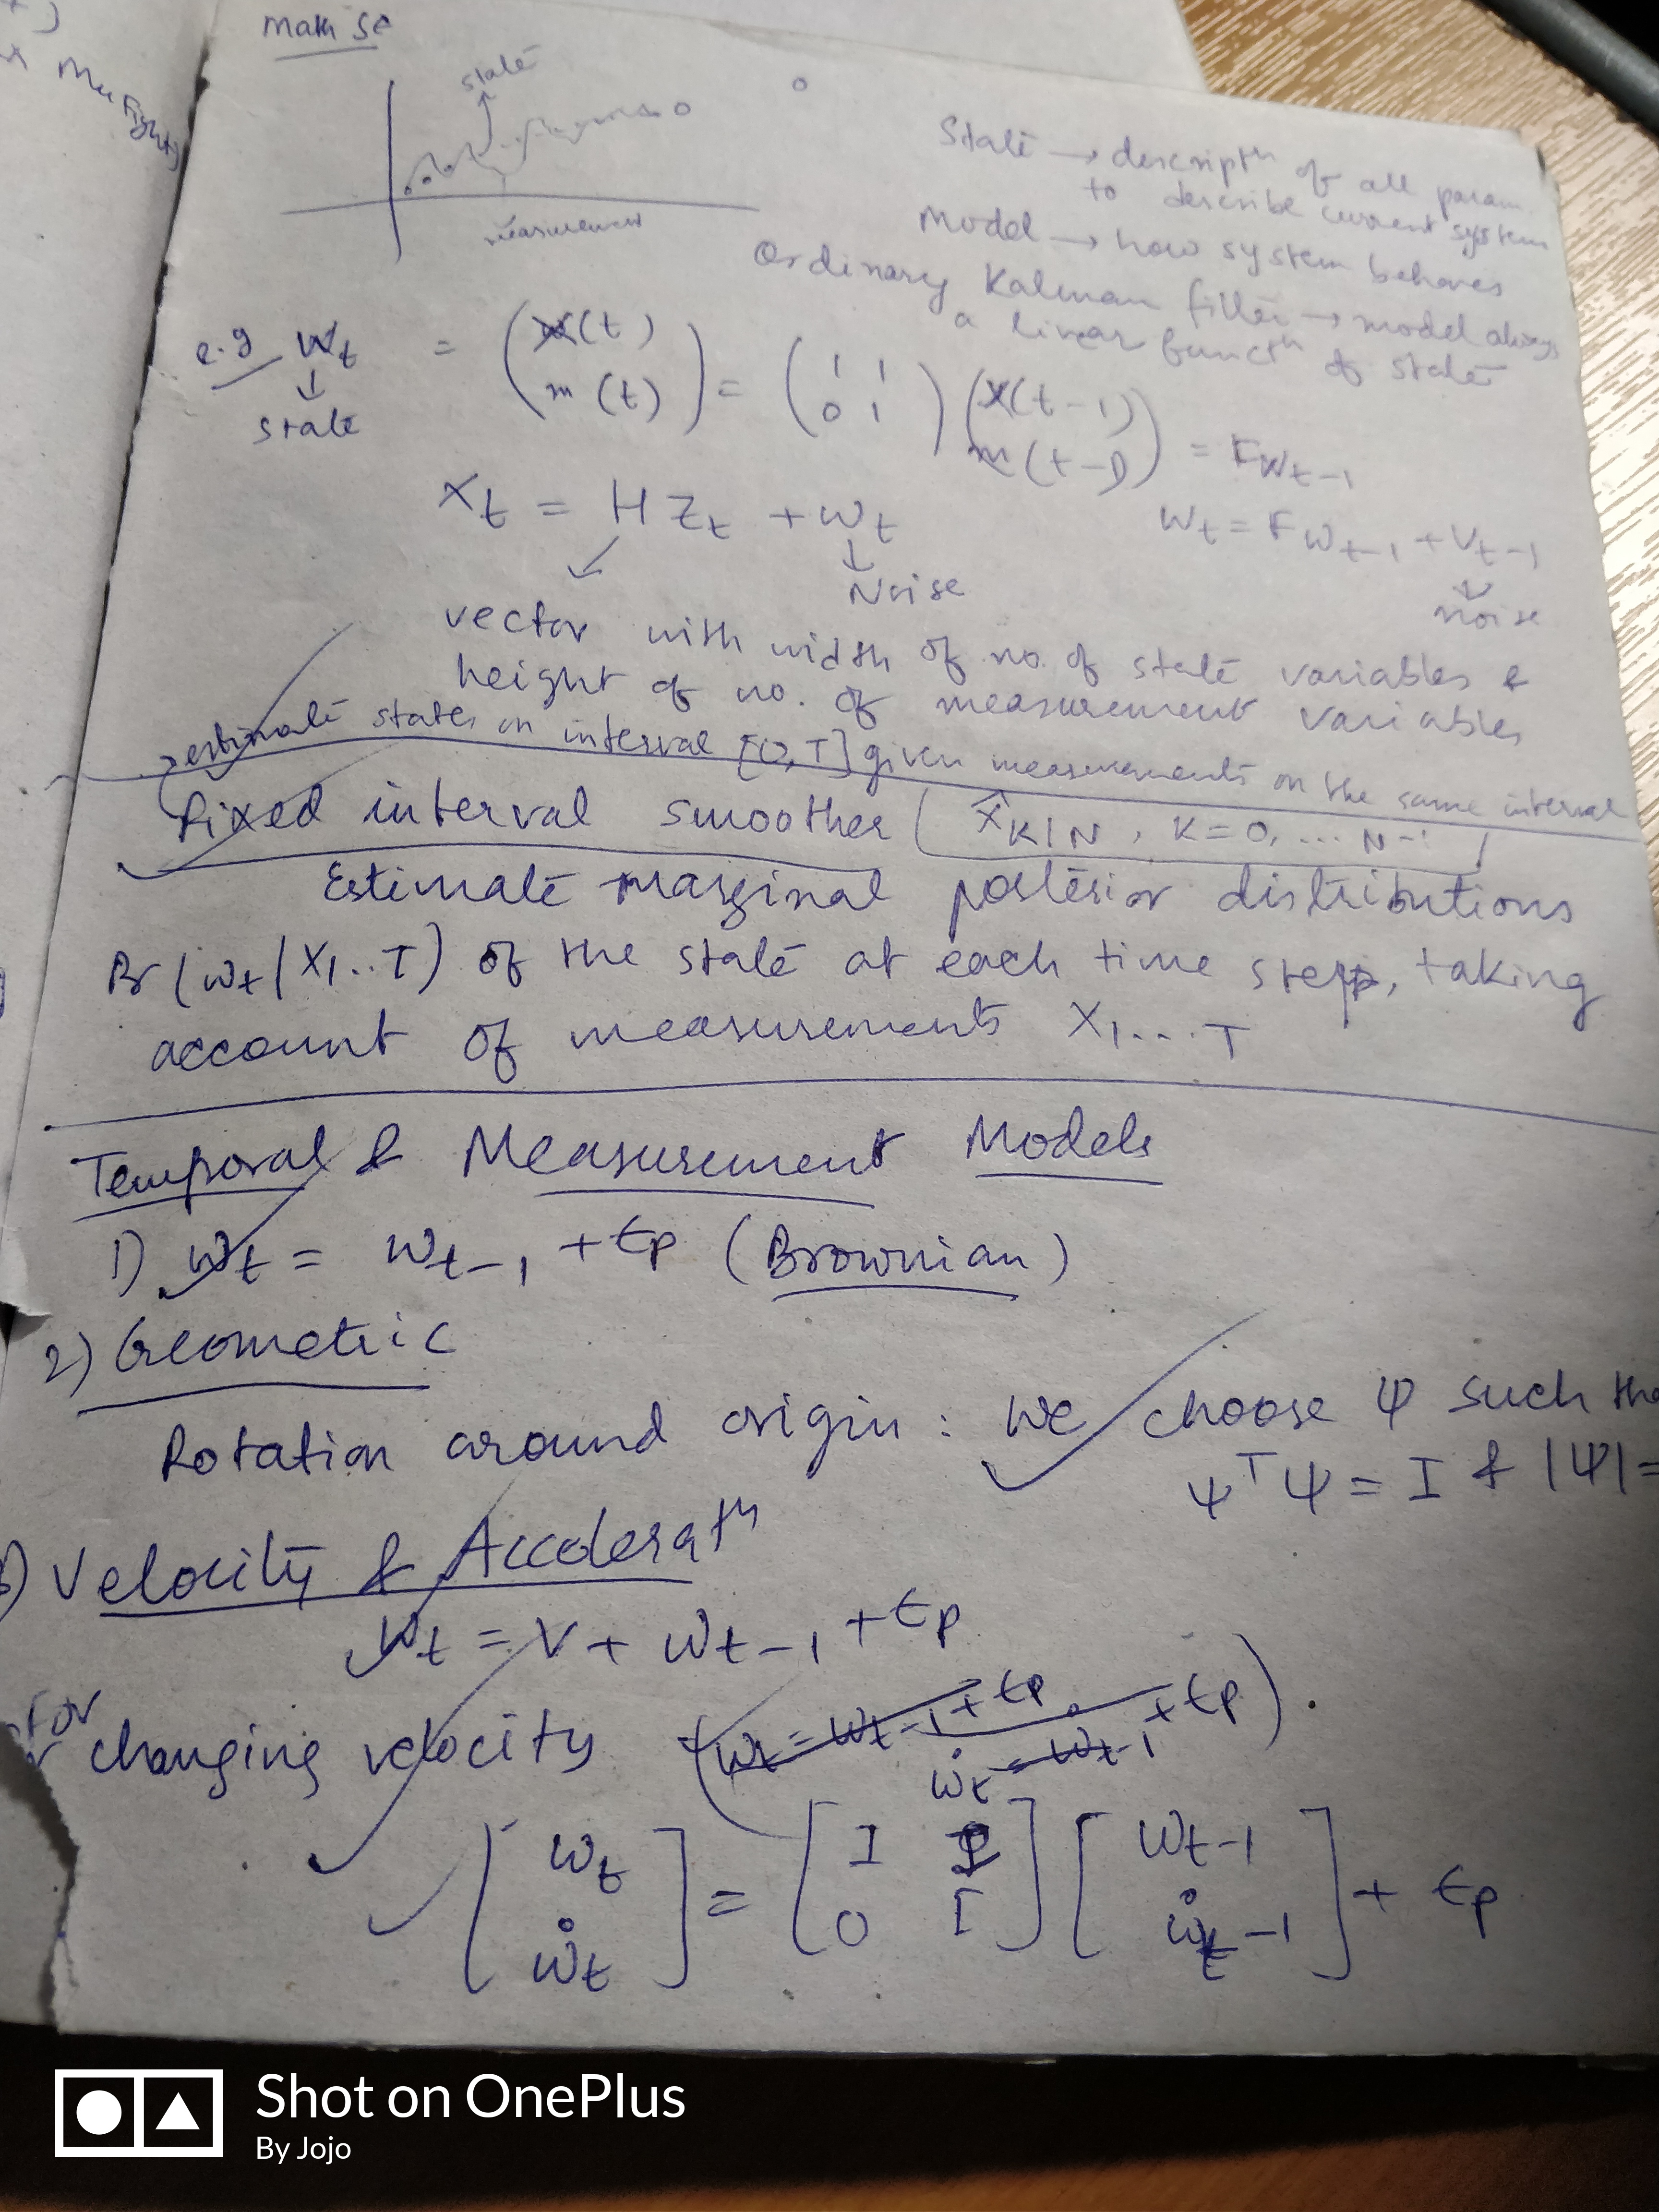 Math Se
state
measurement
State → descriptⁿ of all param
to describe current system
Model → how system behaves
Ordinary Kalman filter → model always
a linear functⁿ of state
e.g Wt = (x(t) m(t)) = (1 1 0 1) (x(t-1) m(t-1)) = Fwt-1
↓
state
Xt = H Zt + wt
wt = Fwt-1 + vt-1
↓
Noise
↓
noise
vector with width of no. of state variables &
height of no. of measurement variables
→ estimate states on interval [0, T] given measurements on the same interval
Fixed interval smoother ( x̂K|N , K = 0, ... N-1 )
Estimate marginal posterior distributions
Pr(wt|X1..T) of the state at each time step, taking
account of measurements X1...T
Temporal & Measurement Models
1) wt = wt-1 + Ep (Brownian)
2) Geometric
Rotation around origin : we choose Ψ such
Ψᵀ Ψ = I & |Ψ| =
) Velocity & Acceleratⁿ
wt = v + wt-1 + Ep
for
changing velocity ( wt = wt-1 + Ep
ẇt = ẇt-1 + Ep ) .
[wt ẇt] = [I I 0 I] [wt-1 ẇt-1] + Ep
Shot on OnePlus
By Jojo